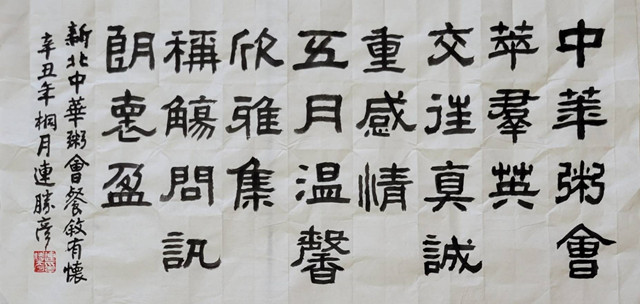 中華粥會
萃羣英
交往真誠
重感情
五月温馨
欣雅集
稱觴問訊
朗懷盈
新北中華粥會餐敘有懷
辛丑年桐月連勝彥